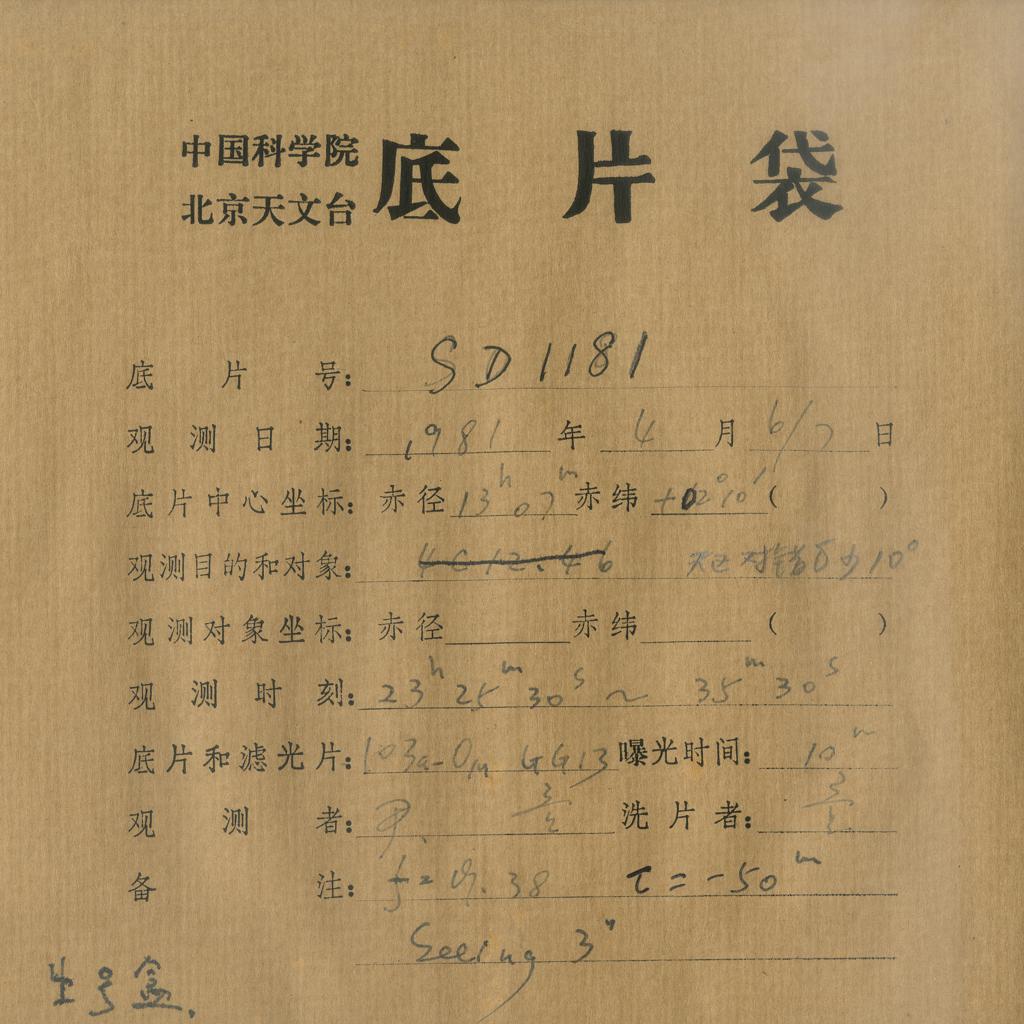 中国科学院
北京天文台
底片袋
底片号: SD1181
观测日期: 1981年 4月 6/7日
底片中心坐标: 赤径 13h 07m 赤纬 +02°10′ ( )
观测目的和对象: 4C12.46 对错 少10°
观测对象坐标: 赤径 赤纬 ( )
观测时刻: 23h 25m 30s ~ 35m 30s
底片和滤光片: 103a-O GG13 曝光时间: 10m
观测者: 洗片者:
备注: τ = -50m
Seeing 3"
号盒.